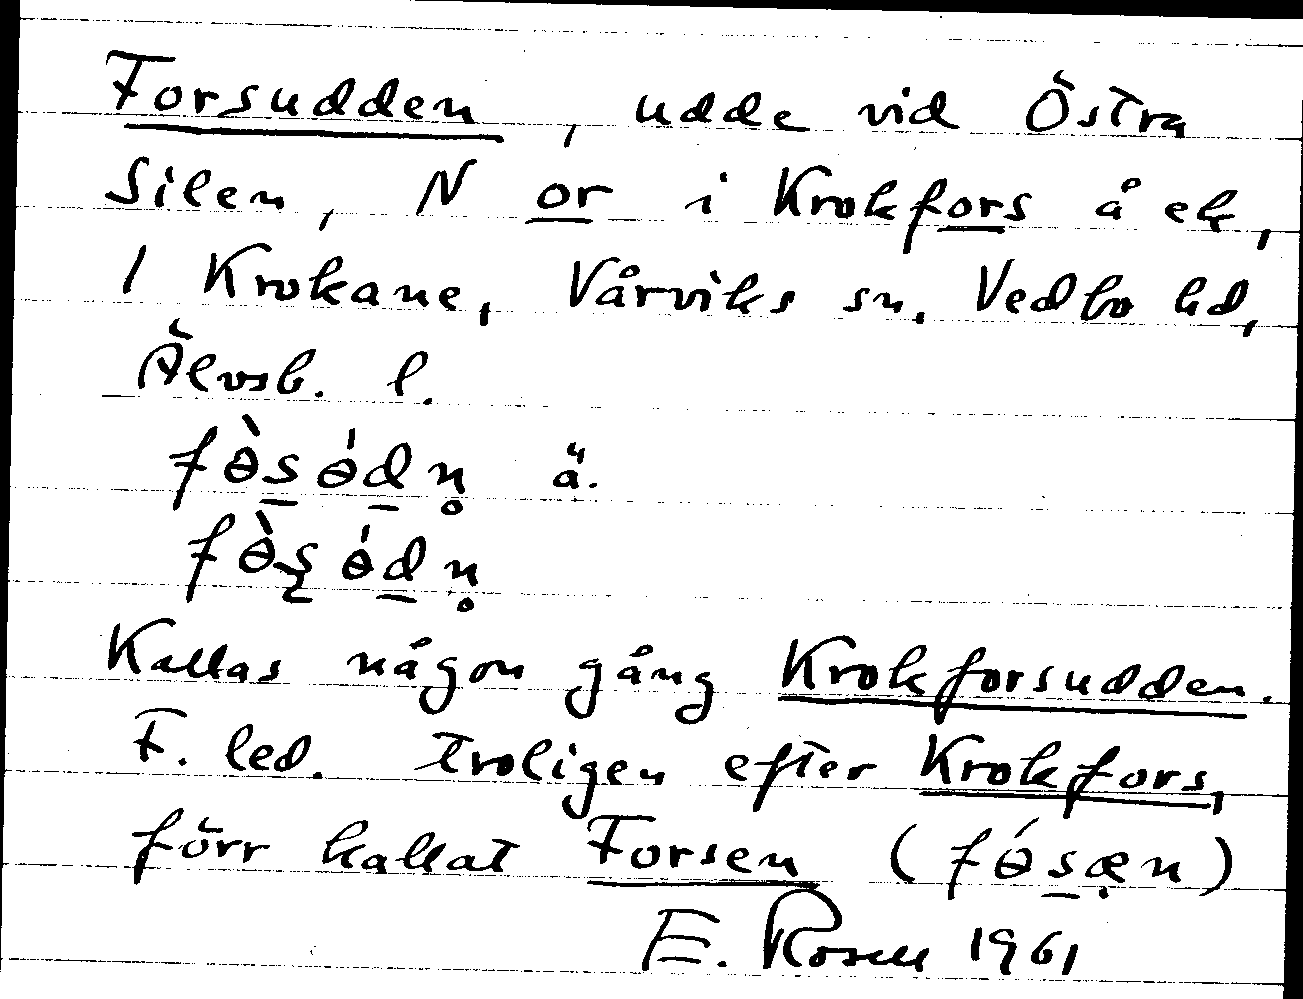 Forsudden, udde vid Östra
Silen, N or i Krokfors å ek,
1 Krokane, Vårviks sn. Vedbo hd,
Älvsb. l.
fɵ̀s̲ɵ́d̲n̥ ä.
fɵ̀ʂ̲ɵ́d̲n̥
Kallas någon gång Krokforsudden.
F. led. troligen efter Krokfors,
förr kallat Forsen (fɵ́s̲æ̣n)
E. Rosell 1961